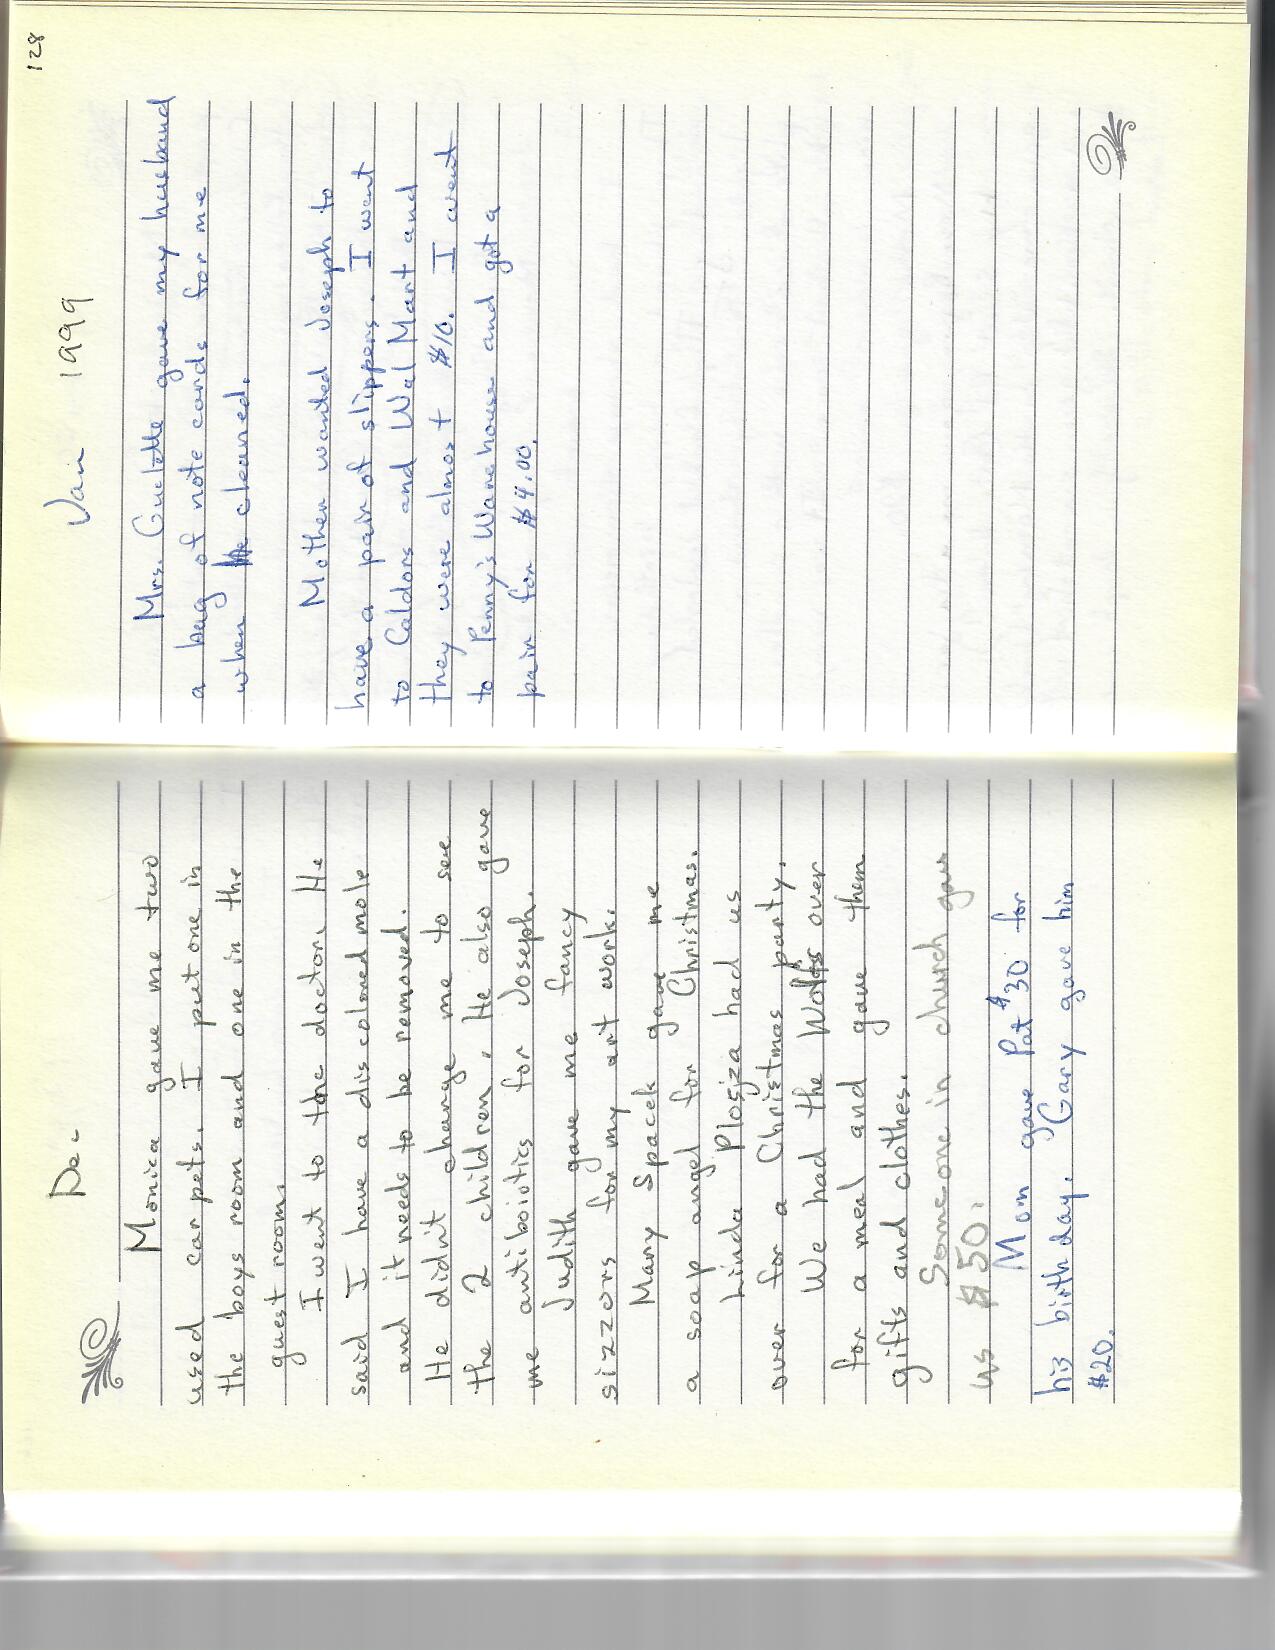 Dec
Monica gave me two
used carpets. I put one in
the boys room and one in the
guest room.
I went to the doctor. He
said I have a discolored mole
and it needs to be removed.
He didn't charge me to see
the 2 children. He also gave
me antiboiotics for Joseph.
Judith gave me fancy
sizzors for my art work.
Mary Spacek gave me
a soap angel for Christmas.
Linda Plosjza had us
over for a Christmas party.
We had the Wolfs over
for a meal and gave them
gifts and clothes.
Someone in church gave
us $50.
Mom gave Pat $30 for
his birthday. Gary gave him
$20.
128
Jan 1999
Mrs. Gulotte gave my husband
a bag of note cards for me
when He cleaned.
Mother wanted Joseph to
have a pair of slippers. I went
to Caldors and Wal Mart and
they were almost $10. I went
to Penny's Warehouse and got a
pair for $4.00.